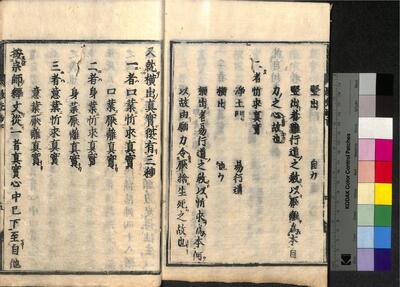 竪出　自力
竪出者難行道之教以厭離為本自
力之心故也
二者忻求真實
浄土門　易行道
横出　他力
横出者易行道之教以忻求為本何
以故由願力令厭捨生死之故也
又就横出真實復有三種
一者口業忻求真實
口業厭離真實
二者身業忻求真實
身業厭離真實
三者意業忻求真實
意業厭離真實
按宗師釋文從一者真實心中已下至自他
KODAK Color Control Patches